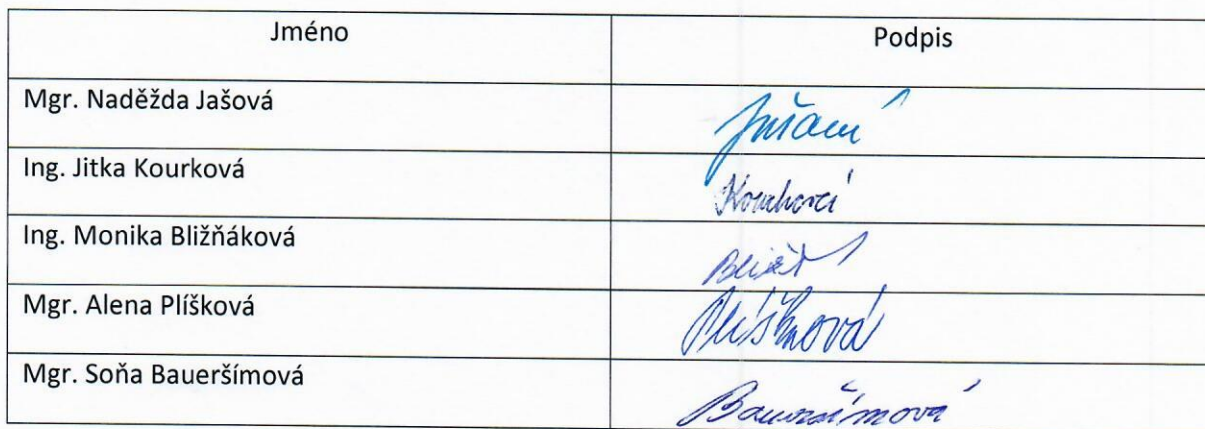 Jméno Podpis
Mgr. Naděžda Jašová Jašová
Ing. Jitka Kourková Kourková
Ing. Monika Bližňáková
Mgr. Alena Plíšková Plíšková
Mgr. Soňa Baueršímová Baueršímová